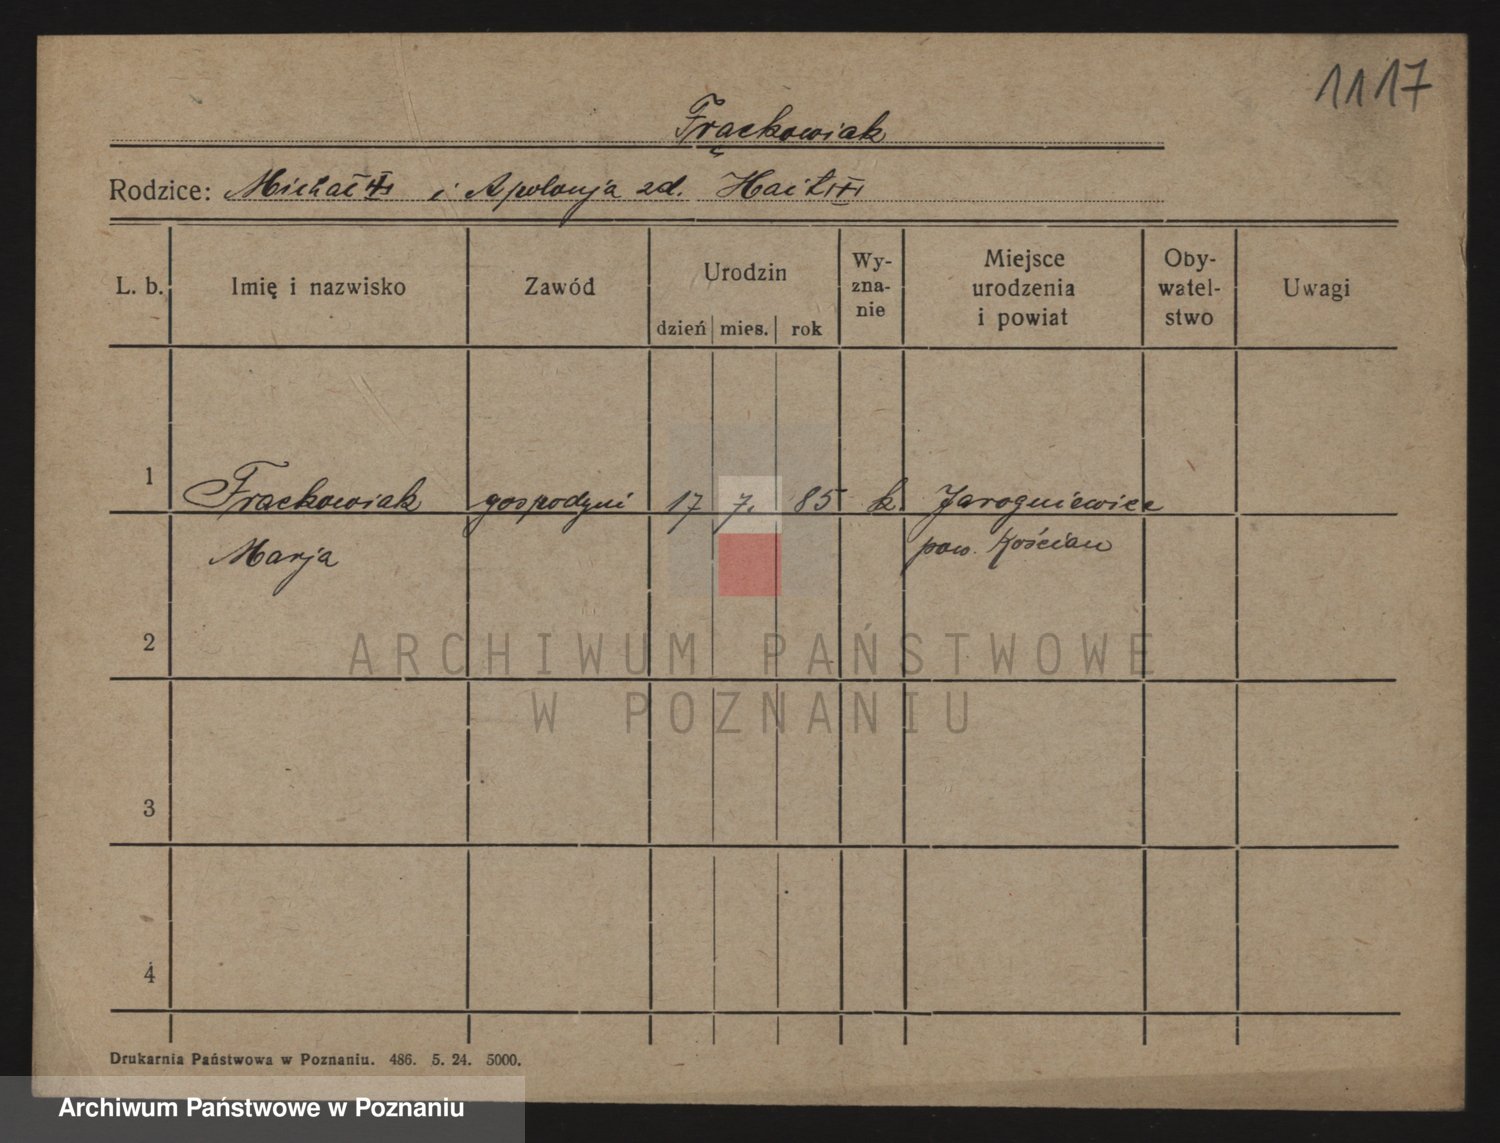 1117
Frąckowiak
Rodzice: Michał i Apolonja zd.
L. b. Imię i nazwisko Zawód Urodzin dzień mies. rok Wy-zna-nie Miejsce urodzenia i powiat Oby-watel-stwo Uwagi
1 Frąckowiak gospodyni 17 7. 85 k Jarogniewice
Marja pow. Kościan
2
ARCHIWUM PAŃSTWOWE
W POZNANIU
3
4
Drukarnia Państwowa w Poznaniu. 486. 5. 24. 5000.
Archiwum Państwowe w Poznaniu